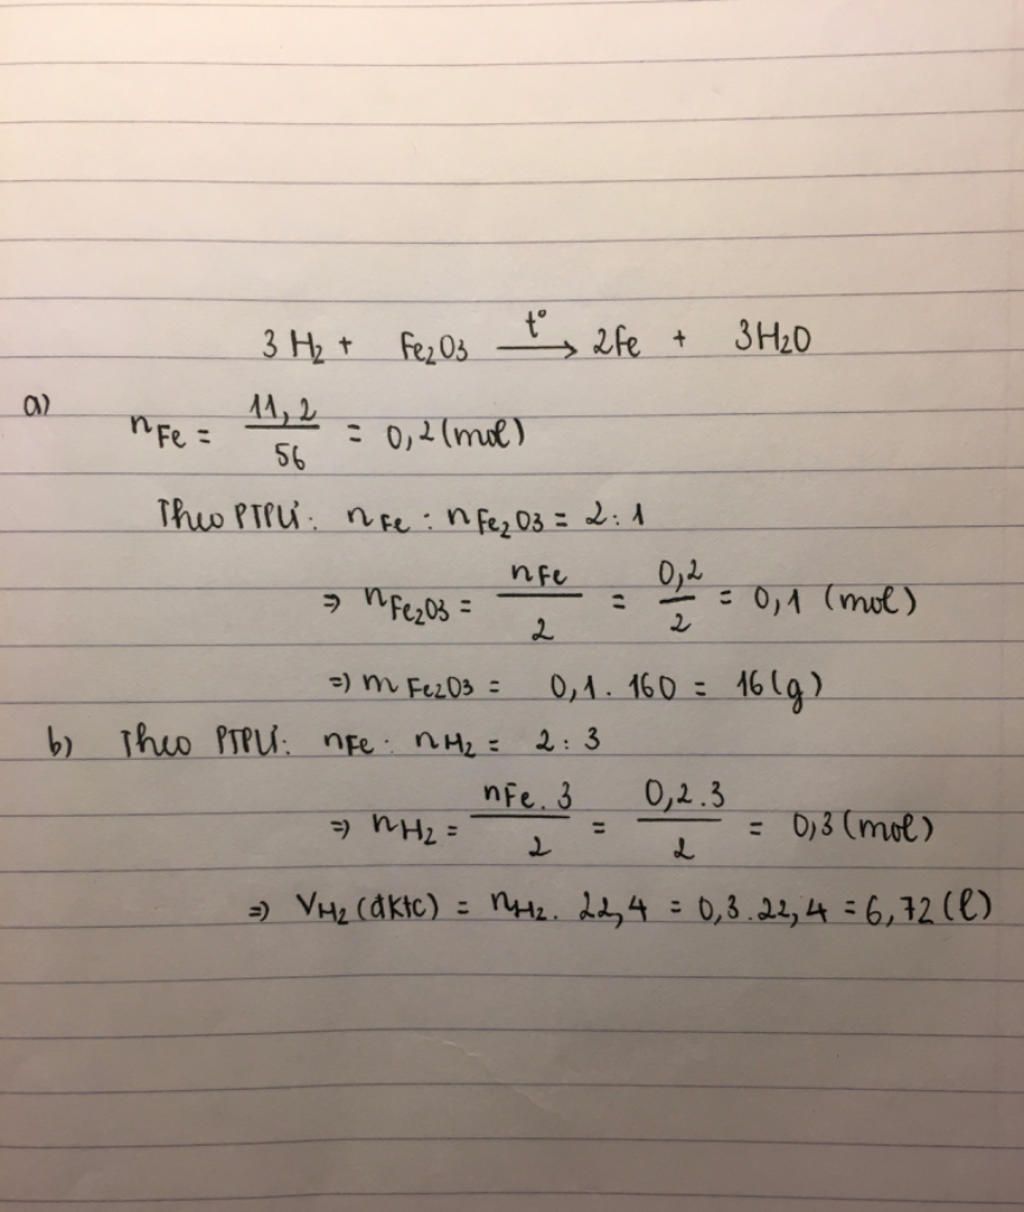 3 H₂ + Fe₂O₃ —t°→ 2Fe + 3H₂O
a) nFe = 11,2/56 = 0,2 (mol)
Theo PTPƯ: nFe : nFe₂O₃ = 2:1
=> nFe₂O₃ = nFe/2 = 0,2/2 = 0,1 (mol)
=> mFe₂O₃ = 0,1 . 160 = 16 (g)
b) Theo PTPƯ: nFe : nH₂ = 2 : 3
=> nH₂ = nFe . 3/2 = 0,2 . 3/2 = 0,3 (mol)
=> VH₂ (đktc) = nH₂ . 22,4 = 0,3 . 22,4 = 6,72 (l)